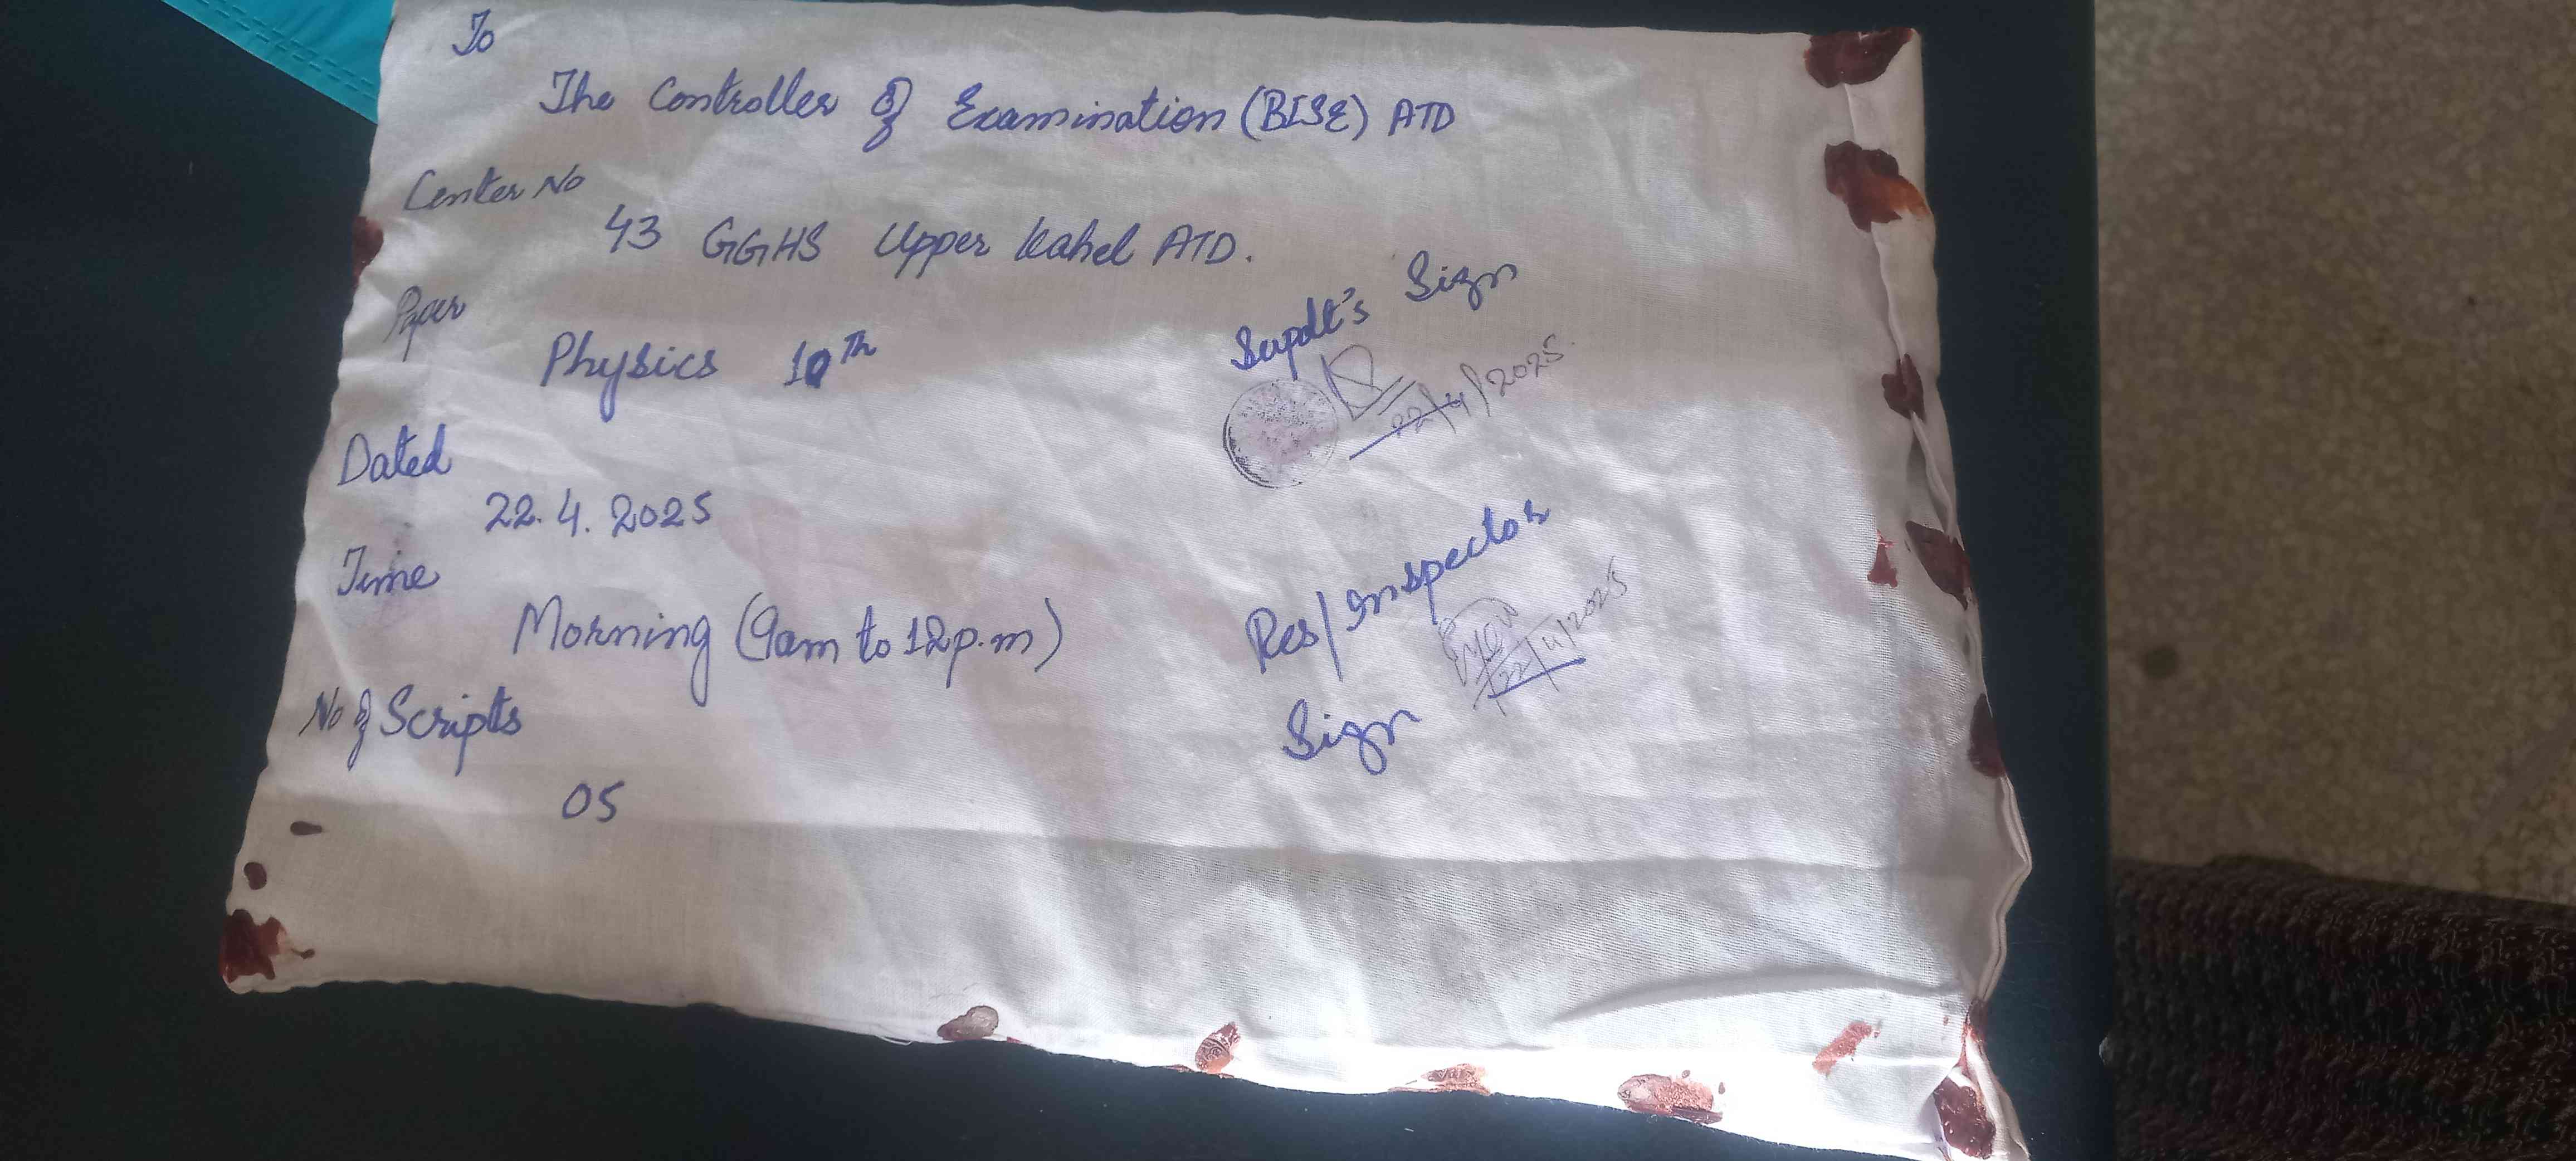 To
The Controller of Examination (BISE) ATD
Center No
43 GGHS Upper Kahel ATD.
Paper
Physics 10Th
Dated
22.4.2025
Time
Morning (9am to 12p.m)
No of Scripts
05
Supdt's Sign
22/4/2025.
Res/Inspector
Sign
22/4/2025